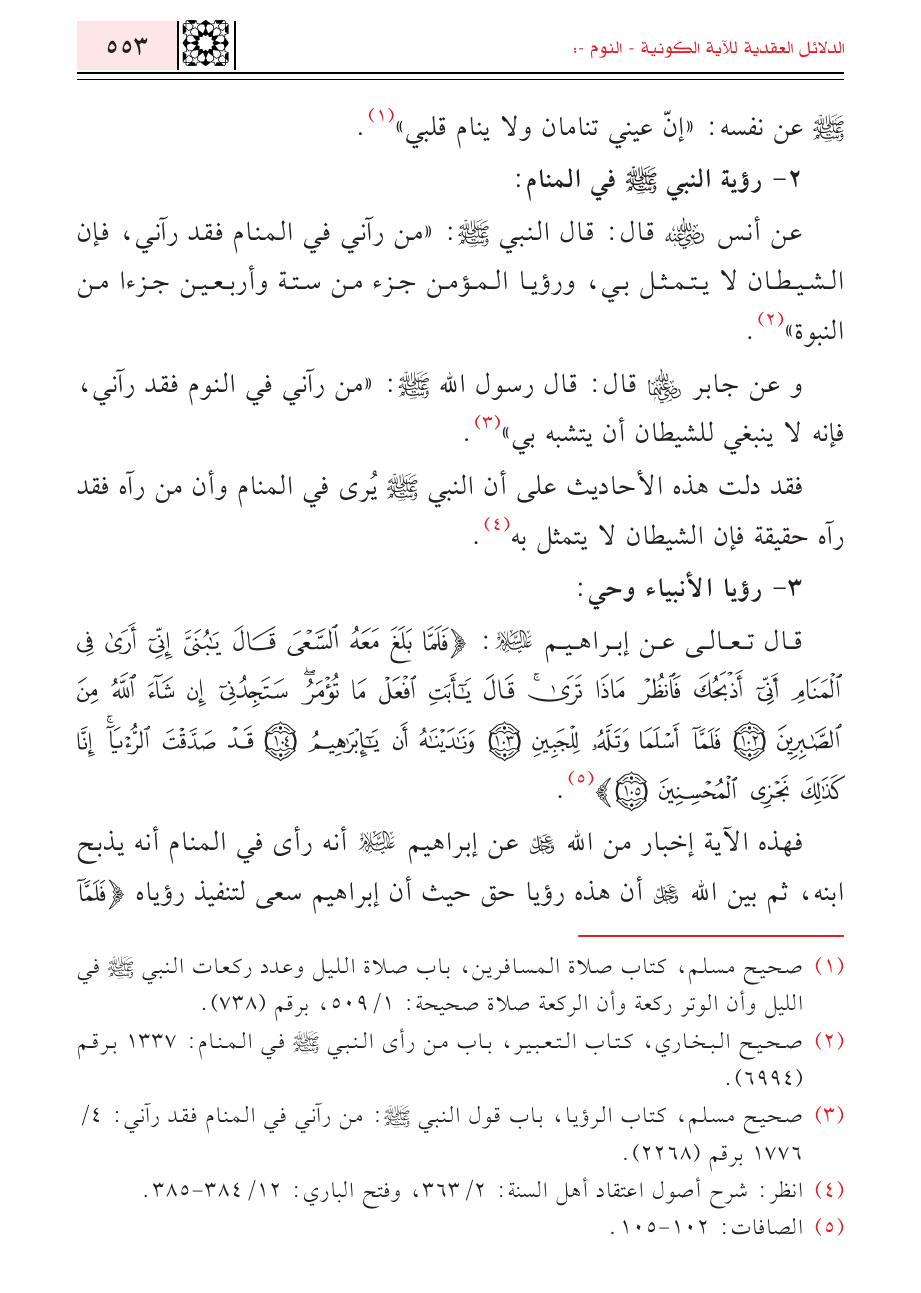 الدلائل العقدية للآية الكونية - النوم -:
٥٥٣
ﷺ عن نفسه: «إنّ عيني تنامان ولا ينام قلبي»(١).
٢- رؤية النبي ﷺ في المنام:
عن أنس رضي الله عنه قال: قال النبي ﷺ: «من رآني في المنام فقد رآني، فإن
الشيطان لا يتمثل بي، ورؤيا المؤمن جزء من ستة وأربعين جزءا من
النبوة»(٢).
و عن جابر رضي الله عنهما قال: قال رسول الله ﷺ: «من رآني في النوم فقد رآني،
فإنه لا ينبغي للشيطان أن يتشبه بي»(٣).
فقد دلت هذه الأحاديث على أن النبي ﷺ يُرى في المنام وأن من رآه فقد
رآه حقيقة فإن الشيطان لا يتمثل به(٤).
٣- رؤيا الأنبياء وحي:
قال تعالى عن إبراهيم عليه السلام: ﴿فَلَمَّا بَلَغَ مَعَهُ ٱلسَّعْىَ قَالَ يَٰبُنَىَّ إِنِّىٓ أَرَىٰ فِى
ٱلْمَنَامِ أَنِّىٓ أَذْبَحُكَ فَٱنظُرْ مَاذَا تَرَىٰۚ قَالَ يَٰٓأَبَتِ ٱفْعَلْ مَا تُؤْمَرُۖ سَتَجِدُنِىٓ إِن شَآءَ ٱللَّهُ مِنَ
ٱلصَّٰبِرِينَ ١٠٢ فَلَمَّآ أَسْلَمَا وَتَلَّهُۥ لِلْجَبِينِ ١٠٣ وَنَٰدَيْنَٰهُ أَن يَٰٓإِبْرَٰهِيمُ ١٠٤ قَدْ صَدَّقْتَ ٱلرُّءْيَآۚ إِنَّا
كَذَٰلِكَ نَجْزِى ٱلْمُحْسِنِينَ ١٠٥﴾(٥).
فهذه الآية إخبار من الله عز وجل عن إبراهيم عليه السلام أنه رأى في المنام أنه يذبح
ابنه، ثم بين الله عز وجل أن هذه رؤيا حق حيث أن إبراهيم سعى لتنفيذ رؤياه ﴿فَلَمَّآ
(١) صحيح مسلم، كتاب صلاة المسافرين، باب صلاة الليل وعدد ركعات النبي ﷺ في
الليل وأن الوتر ركعة وأن الركعة صلاة صحيحة: ١/ ٥٠٩، برقم (٧٣٨).
(٢) صحيح البخاري، كتاب التعبير، باب من رأى النبي ﷺ في المنام: ١٣٣٧ برقم
(٦٩٩٤).
(٣) صحيح مسلم، كتاب الرؤيا، باب قول النبي ﷺ: من رآني في المنام فقد رآني: ٤/
١٧٧٦ برقم (٢٢٦٨).
(٤) انظر: شرح أصول اعتقاد أهل السنة: ٢/ ٣٦٣، وفتح الباري: ١٢/ ٣٨٤-٣٨٥.
(٥) الصافات: ١٠٢-١٠٥.